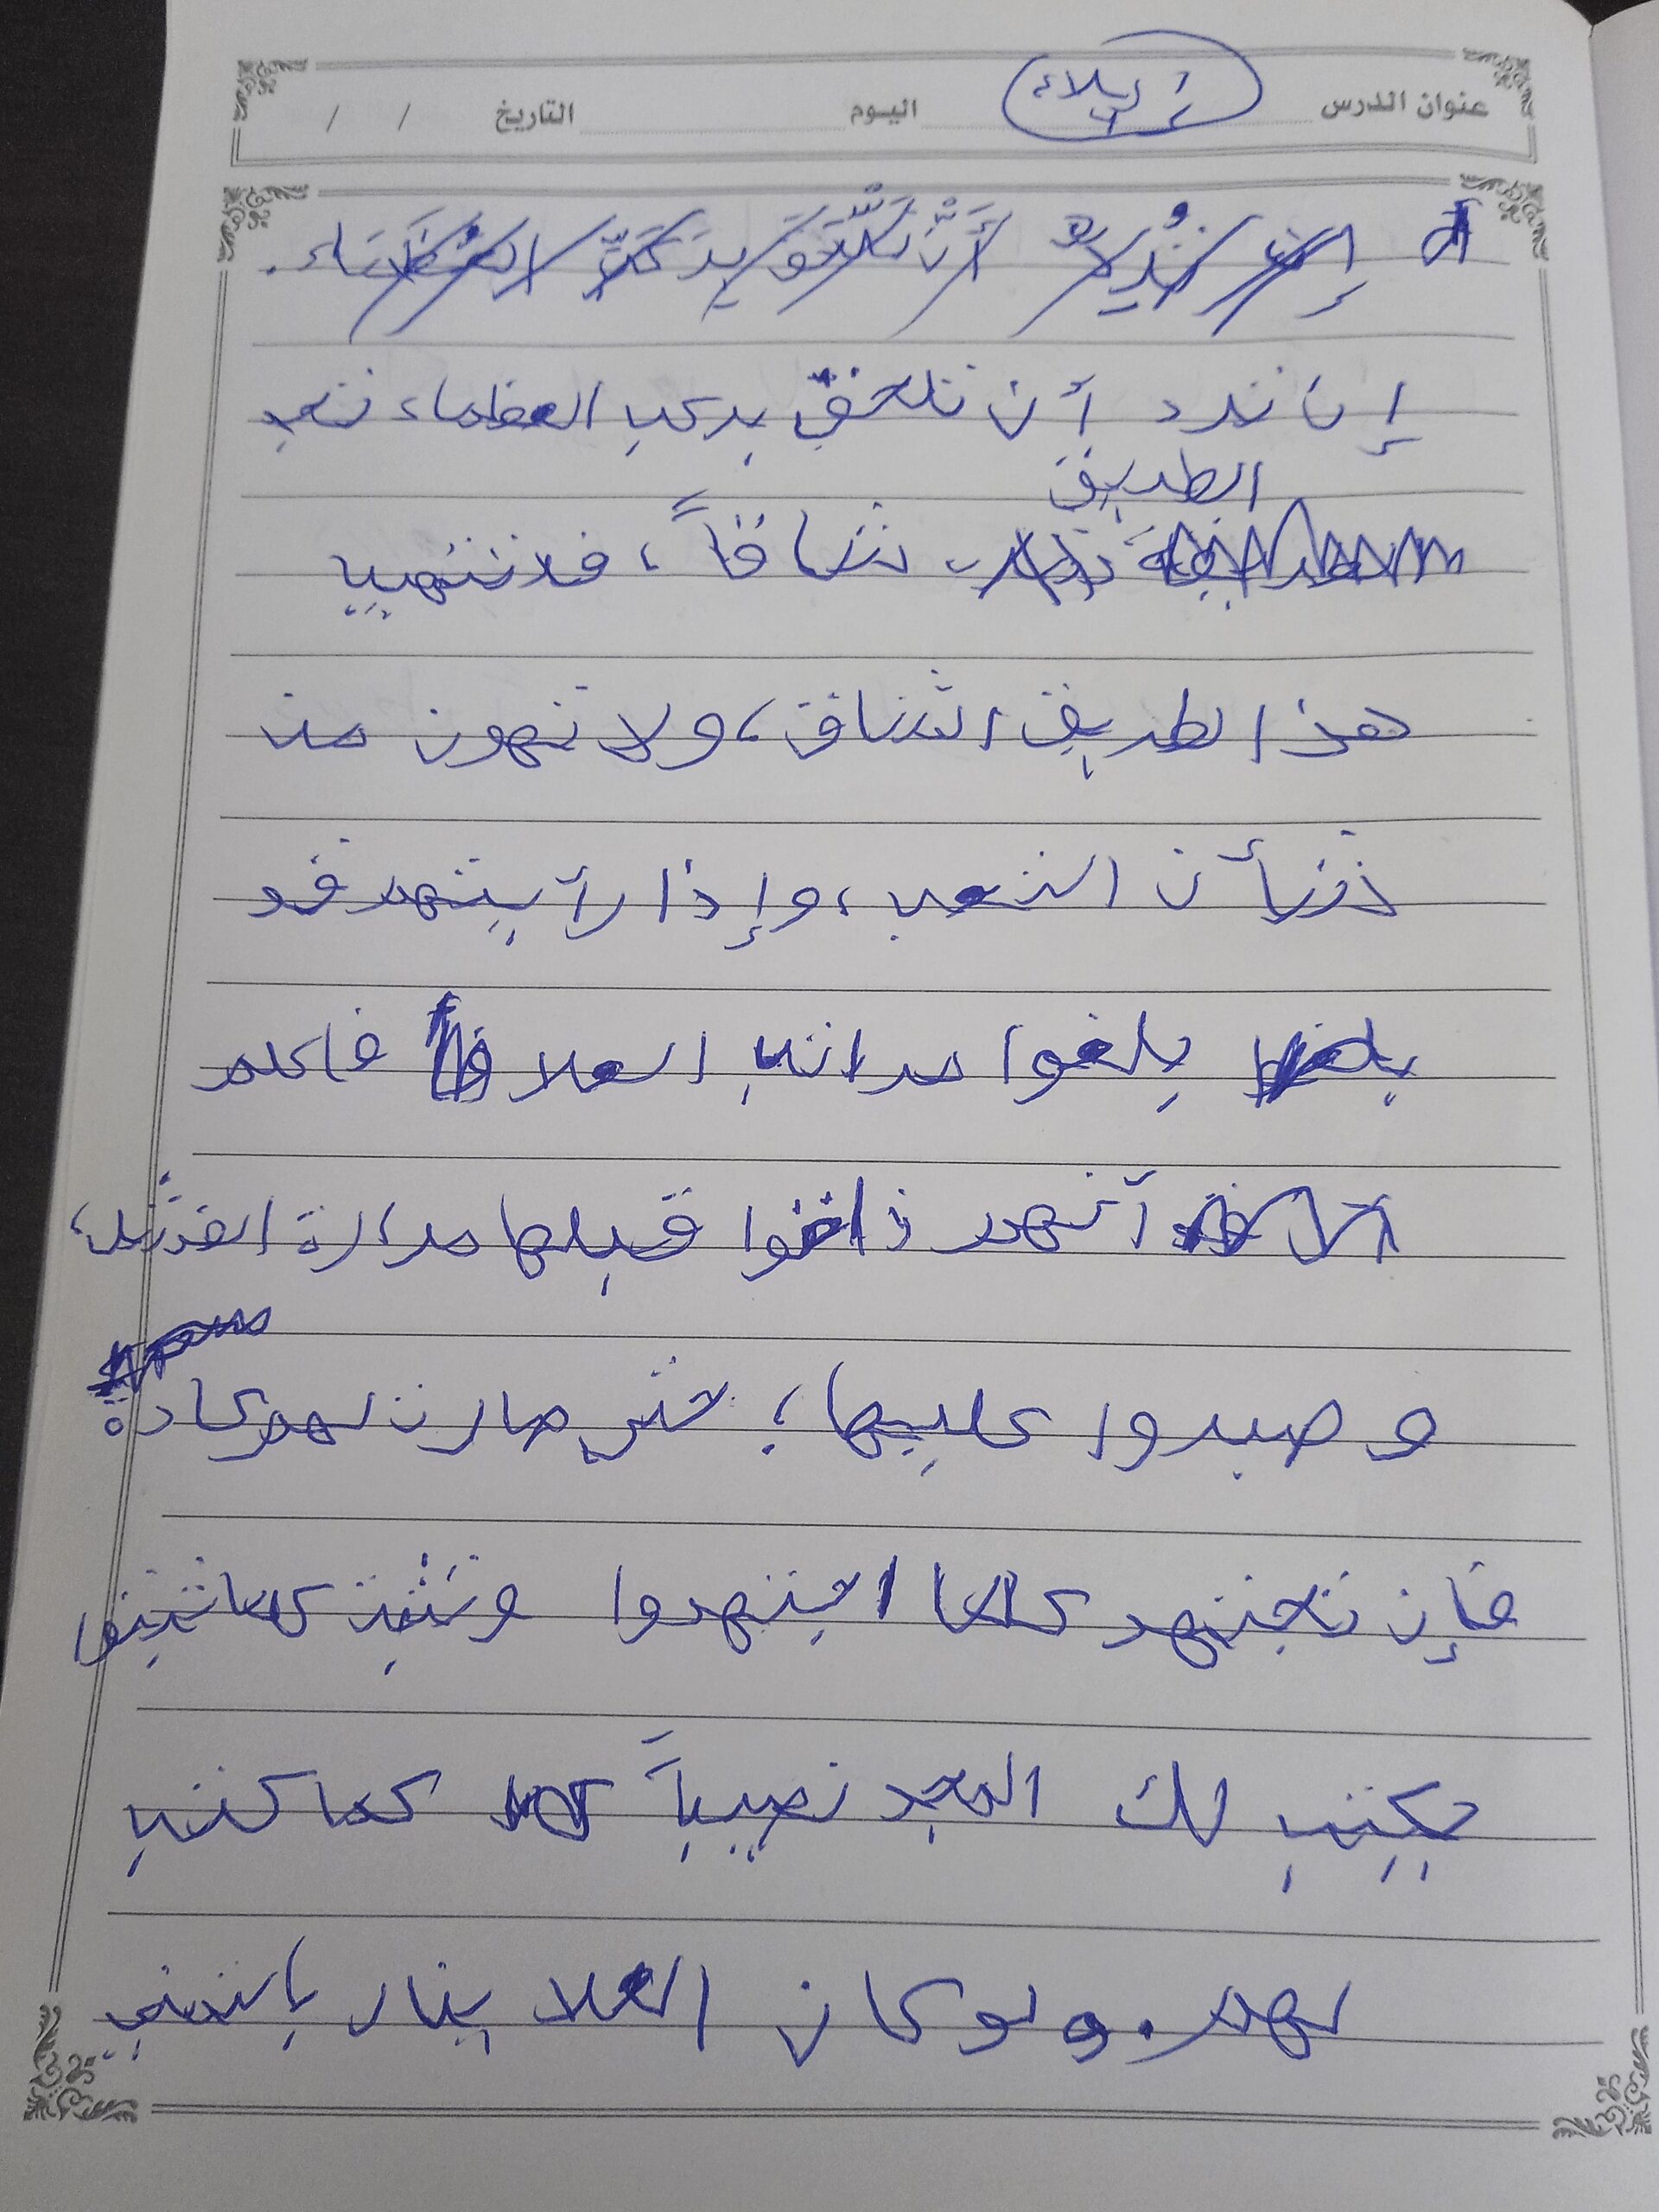 عنوان الدرس إملاء اليوم التاريخ / /
إن ترد أن تلتحق بركب العظماء.
إن ترد أن تلحق بركب العظماء تجد
الطريق
شاقاً، فلا تتهيب
هذا الطريق الشاق، ولا تهون من
شأن التعب، وإذا رأيتهم قد
بلغوا مراتب العلا فاعلم
أنهم ذاقوا قبلها مرارة الفشل،
وصبروا عليها؛ حتى صارت لهم عادة
فإن تجتهد كما اجتهدوا وتثبت كما ثبتوا
يكتب لك المجد نصيباً كما كتب
لهم. ولو كان العلا ينال بالتمني